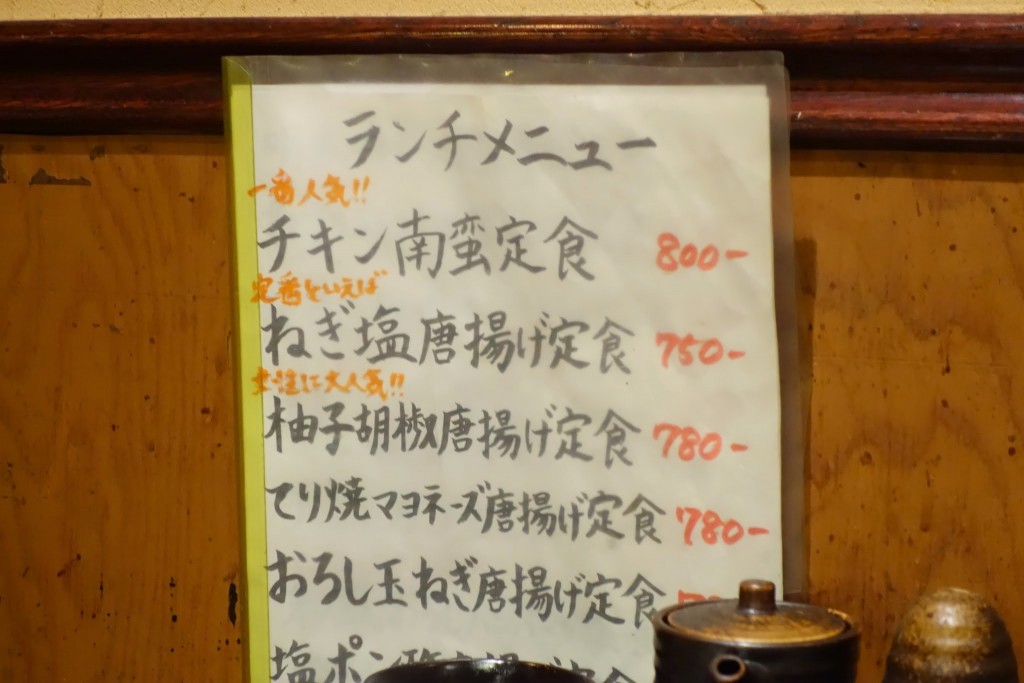 ランチメニュー
一番人気!!
チキン南蛮定食 800-
定番といえば
ねぎ塩唐揚げ定食 750-
大人気!!
柚子胡椒唐揚げ定食 780-
てり焼マヨネーズ唐揚げ定食 780-
おろし玉ねぎ唐揚げ定食
塩ポン